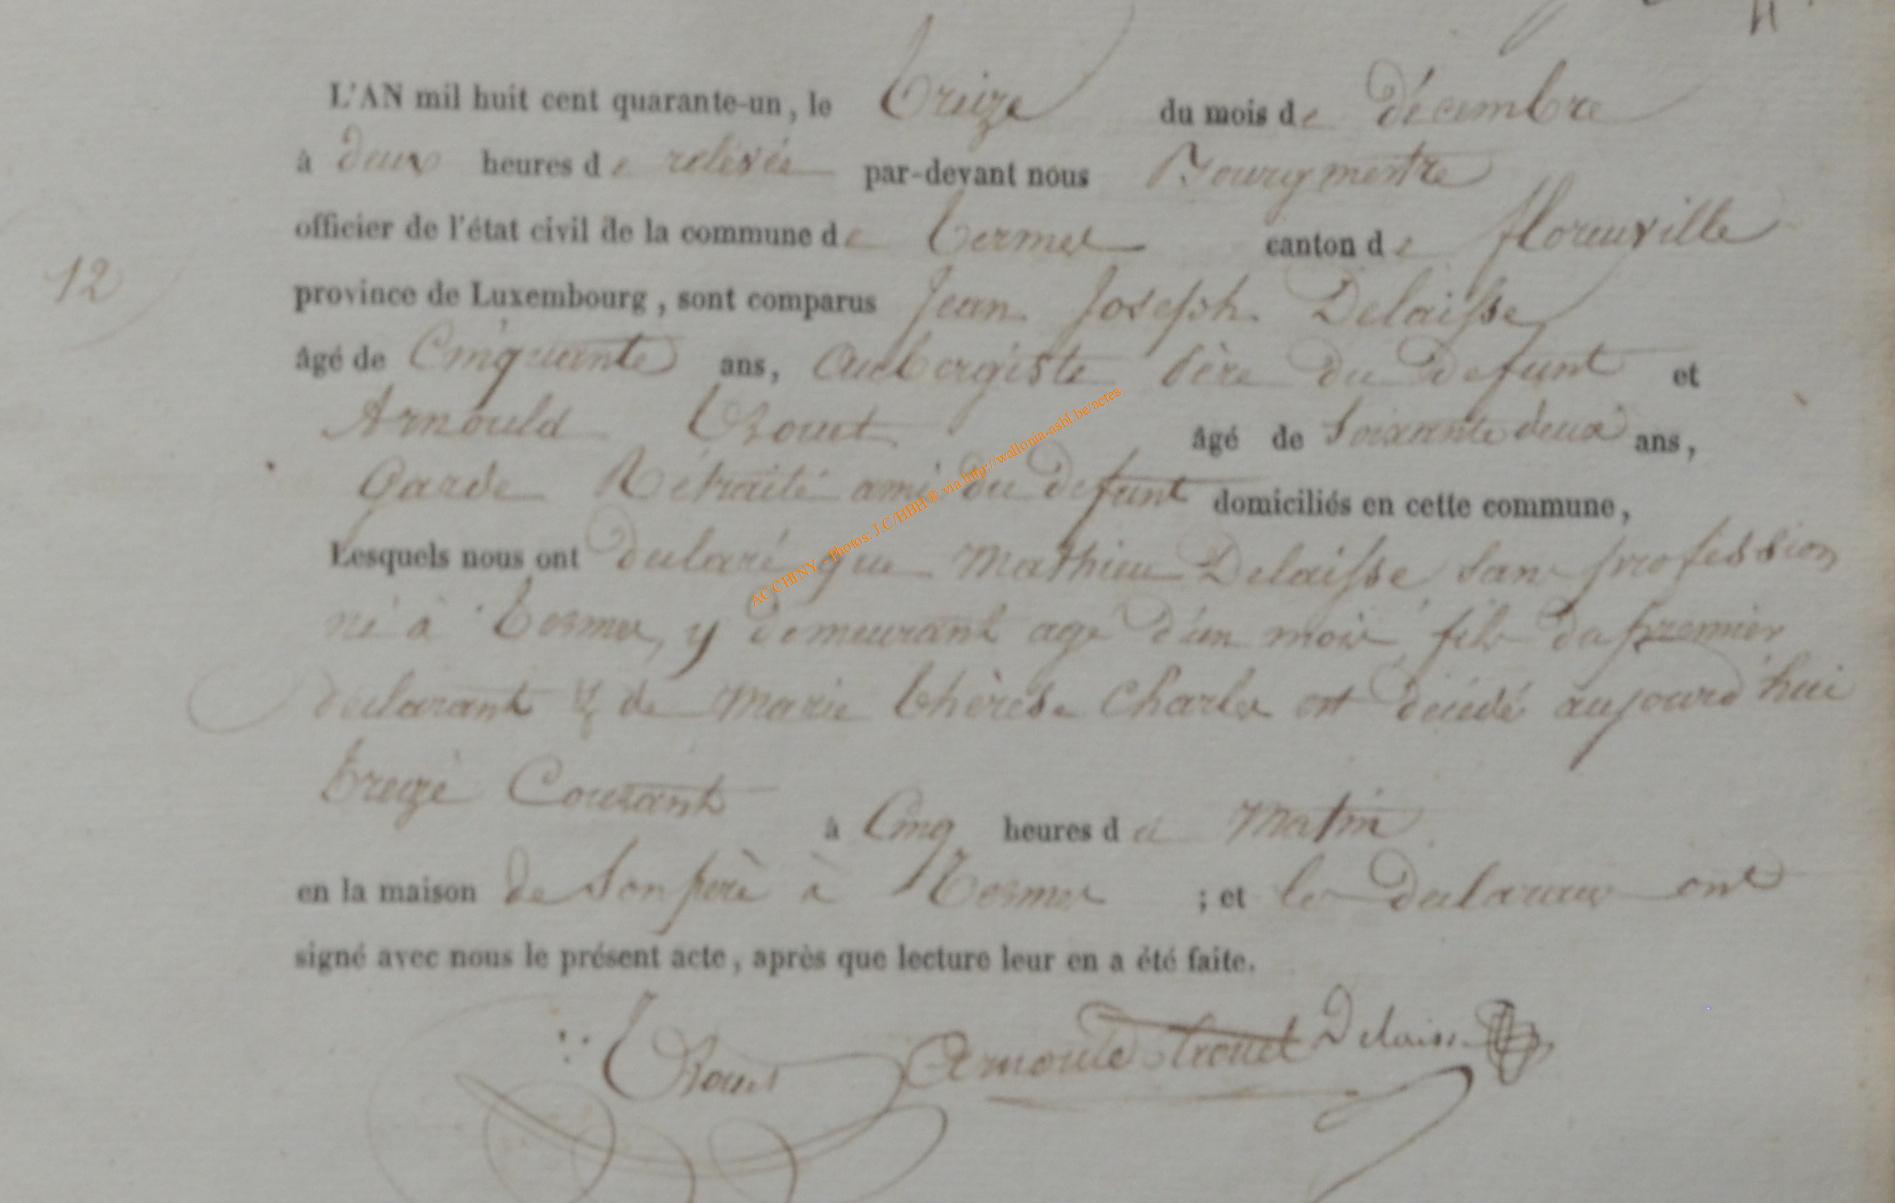 L'AN mil huit cent quarante-un, le treize du mois de décembre
à deux heures de relévée par-devant nous Bourgmestre
officier de l'état civil de la commune de termes canton de florenville
12
province de Luxembourg, sont comparus Jean Joseph Delaisse
âgé de Cinquante ans, aubergiste père du defunt et
Arnould trouet âgé de Soixante deux ans,
Garde Rétraité ami du defunt domiciliés en cette commune,
Lesquels nous ont declaré que Mathieu Delaisse, sans profession
né à termes, y demeurant agé d'un mois, fils du premier
declarant & de Marie thérèse Charles est décédé aujourd'hui
treize Courant à Cinq heures du Matin
en la maison de Son père à termes ; et les declarans ont
signé avec nous le présent acte, après que lecture leur en a été faite.
trouet Arnould trouet Delaisse
AC CHINY - Photos: J.C/HBH ® via http://wallonia-asbl.be/actes